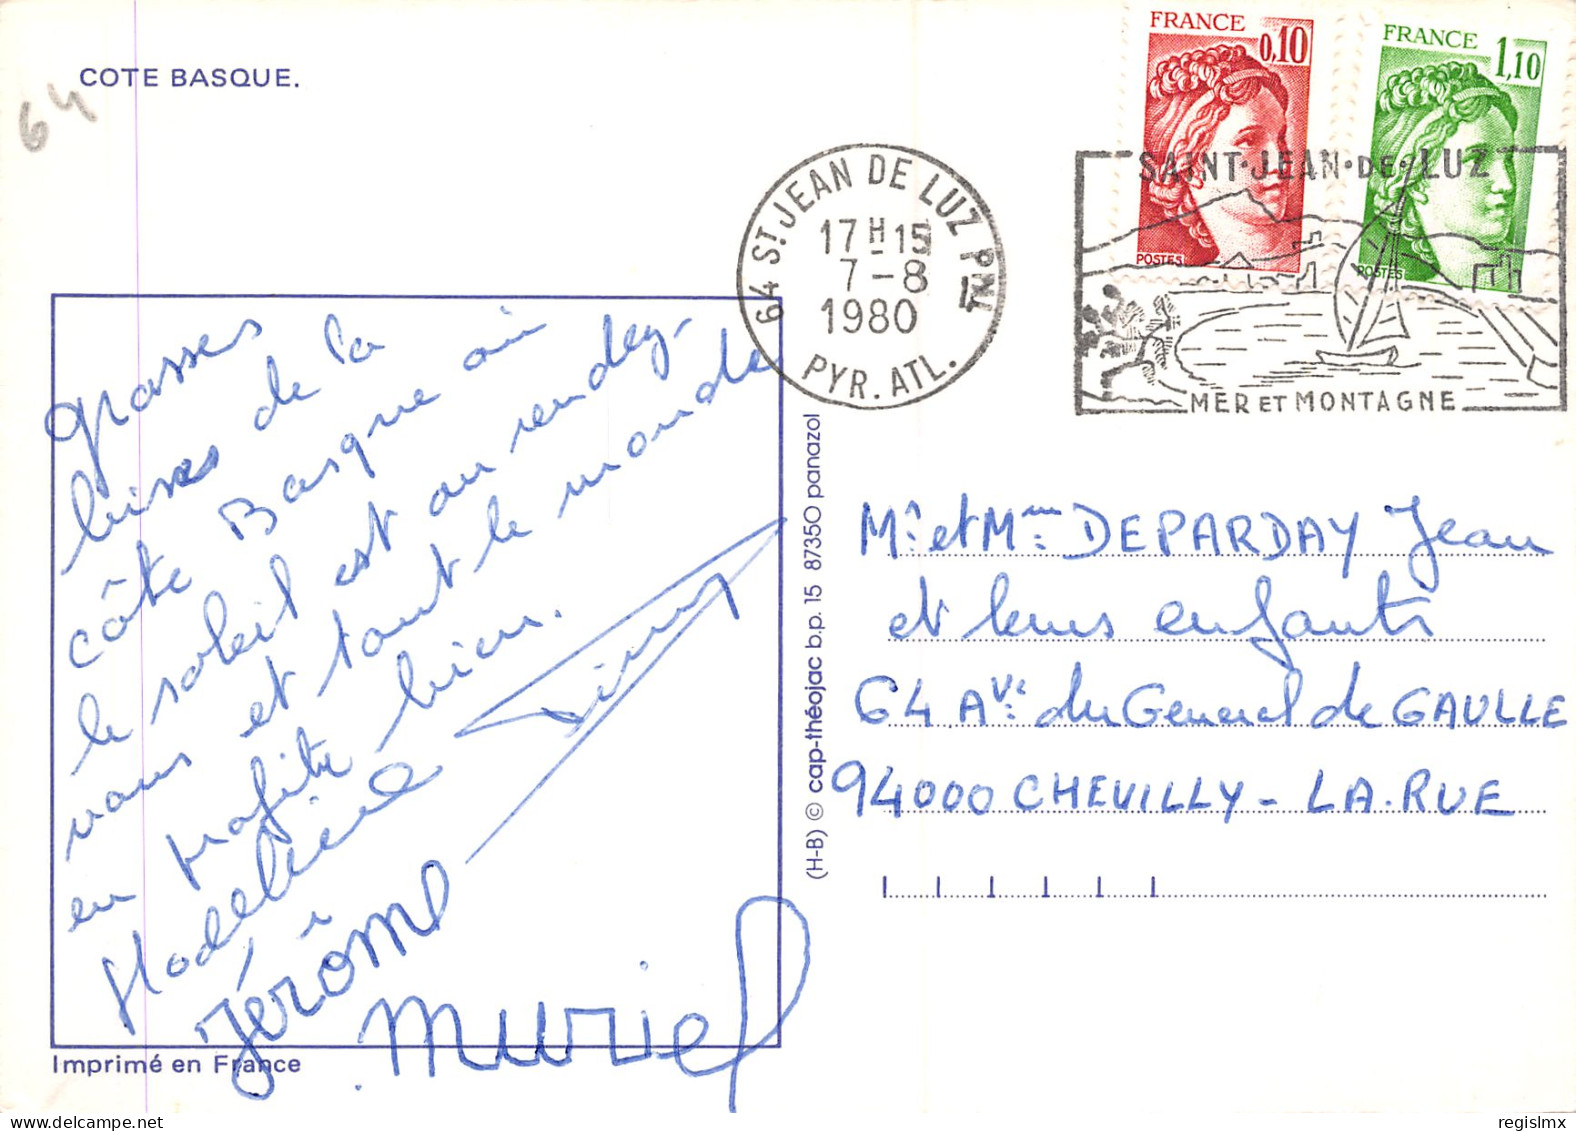 COTE BASQUE.
64
FRANCE
0,10
POSTES
FRANCE
1,10
POSTES
64 ST JEAN DE LUZ PAL
17 H 15
7-8
1980
PYR. ATL.
SAINT·JEAN·DE·LUZ
MER ET MONTAGNE
grosses
bises de la
côte Basque où
le soleil est au rendez-
vous et tout le monde
en profite bien.
Madeleine
Jérôme
Muriel
Mr et Mme DEPARDAY Jean
et leurs enfants
64 Ave du General de GAULLE
94000 CHEVILLY-LA.RUE
(H-B) © cap-théojac b.p. 15 87350 panazol
Imprimé en France
regislmx